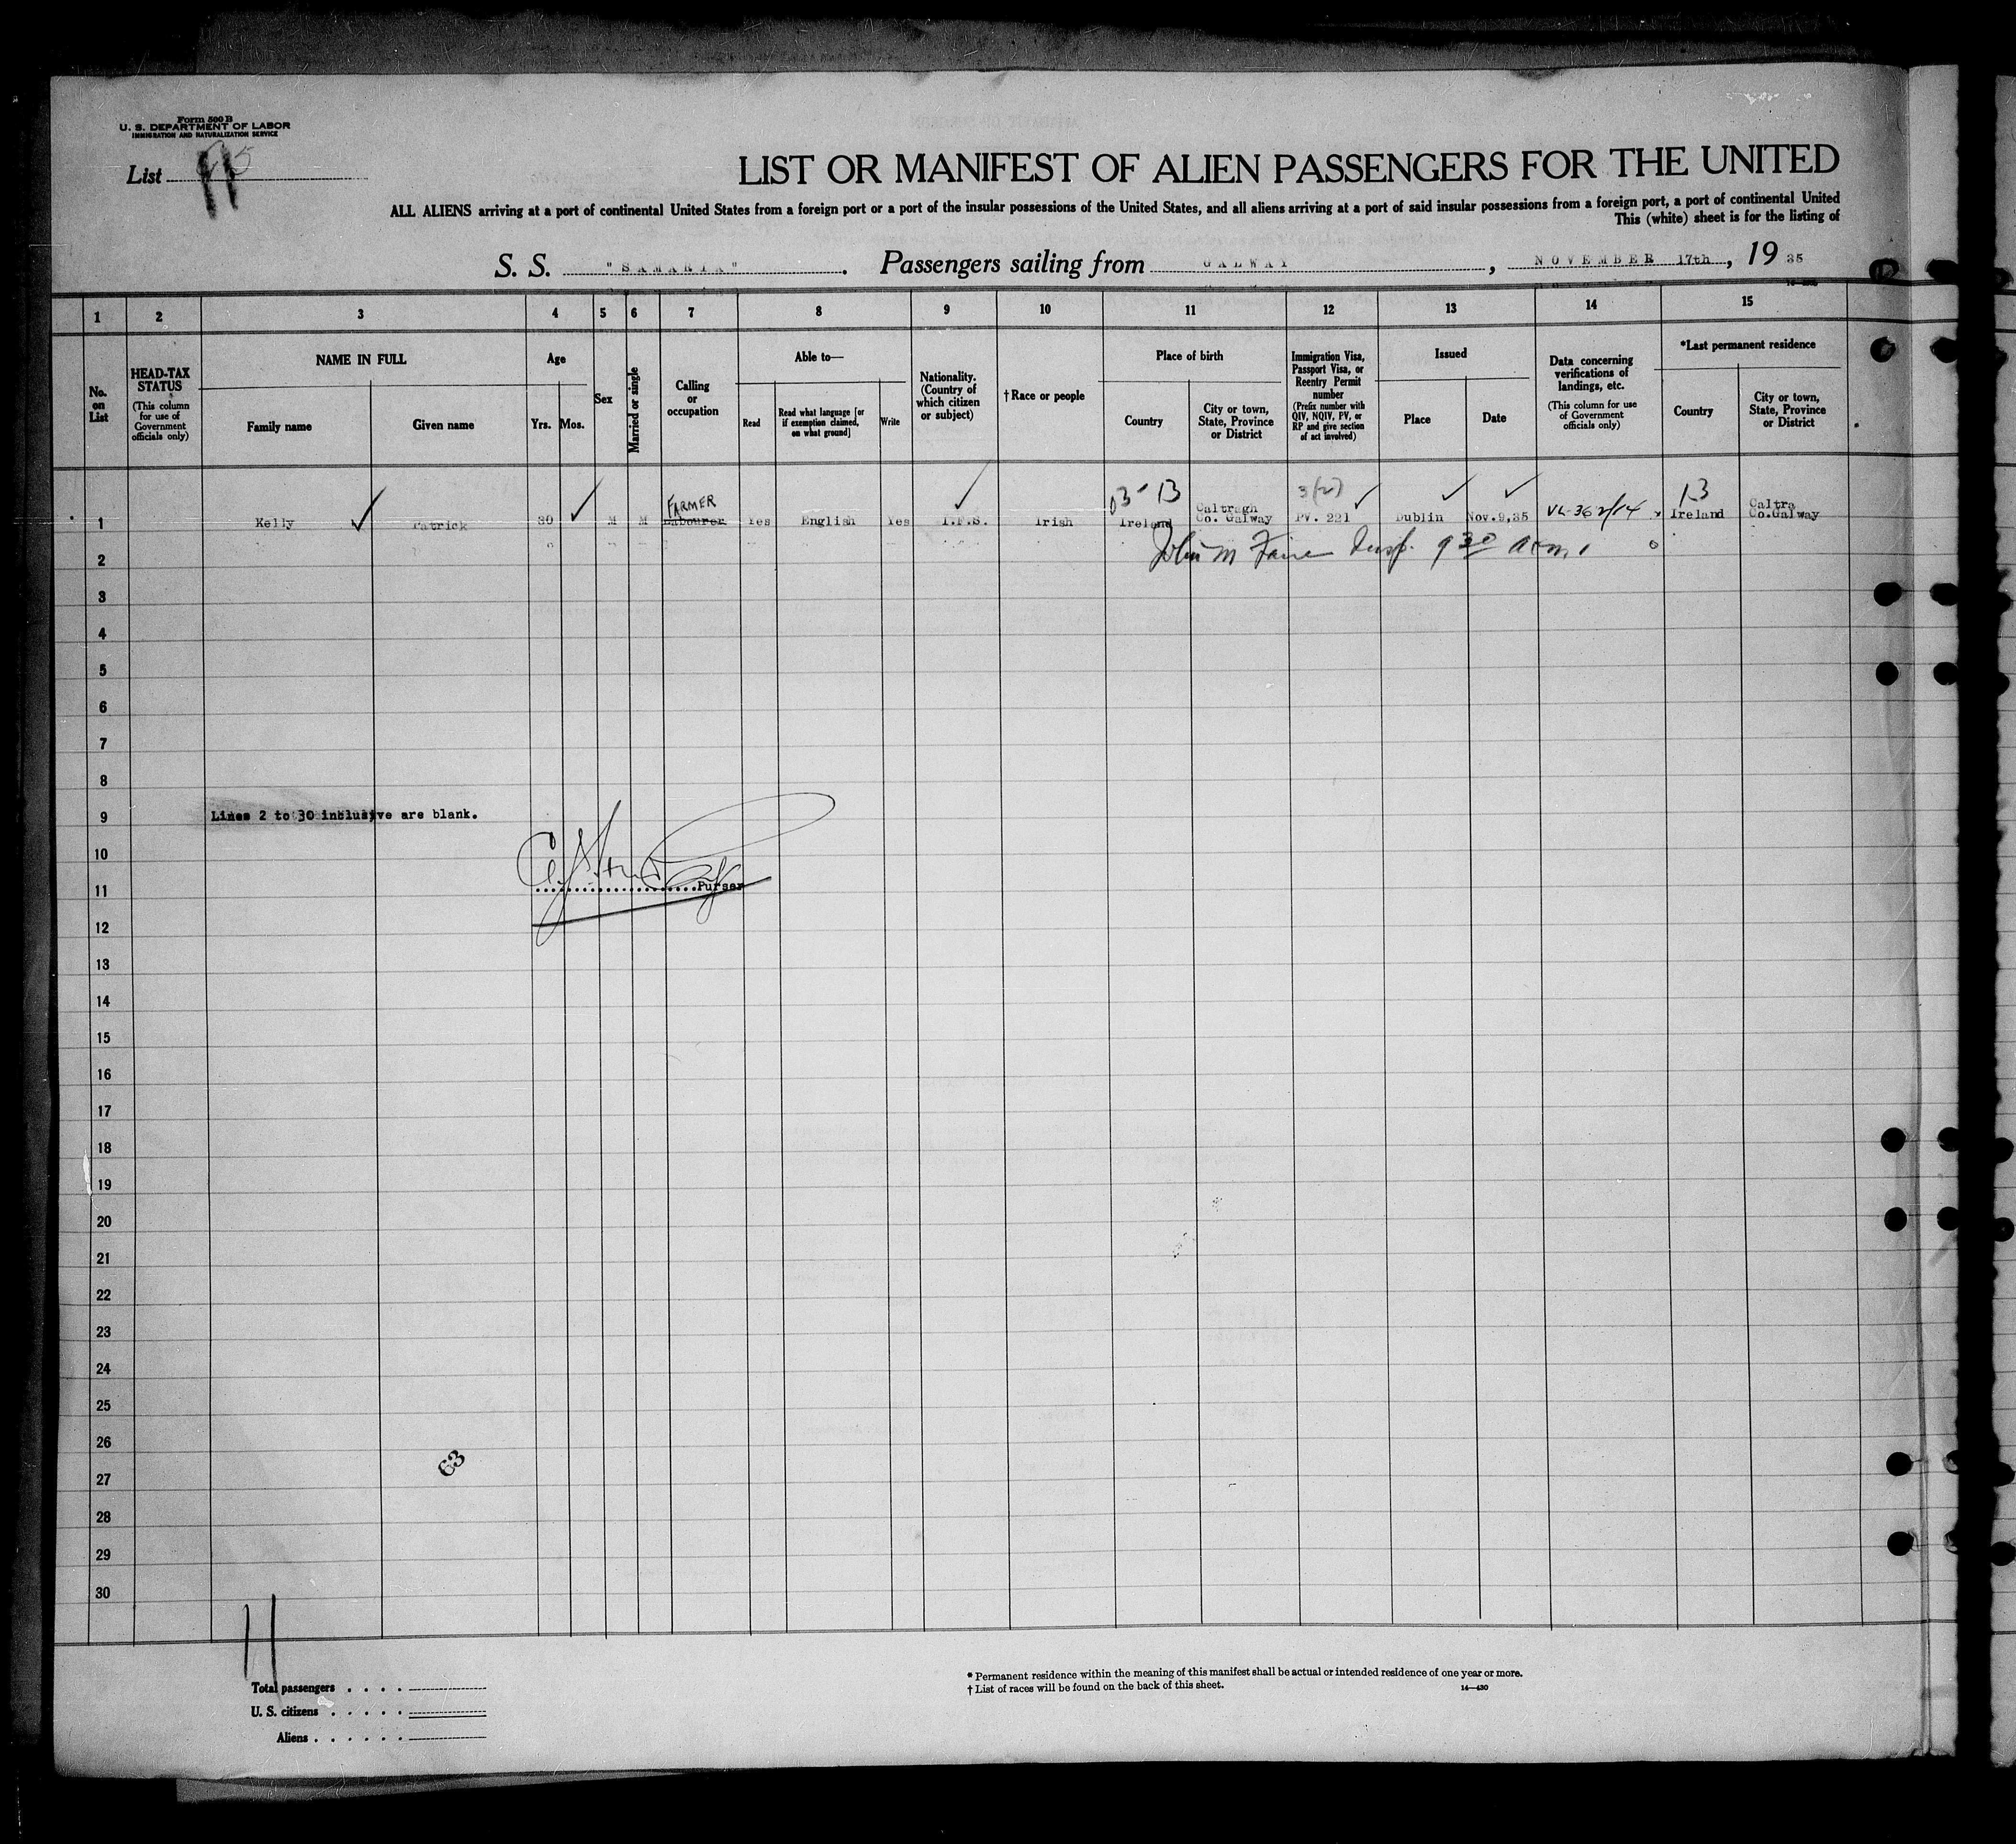 Form 500 B
U. S. DEPARTMENT OF LABOR
IMMIGRATION AND NATURALIZATION SERVICE
List
LIST OR MANIFEST OF ALIEN PASSENGERS FOR THE UNITED
ALL ALIENS arriving at a port of continental United States from a foreign port or a port of the insular possessions of the United States, and all aliens arriving at a port of said insular possessions from a foreign port, a port of continental United
This (white) sheet is for the listing of
S. S. "SAMARIA". Passengers sailing from GALWAY, NOVEMBER 17th, 19 35
1 2 3 4 5 6 7 8 9 10 11 12 13 14 15
No. on List
HEAD-TAX STATUS (This column for use of Government officials only)
NAME IN FULL
Family name
Given name
Age
Yrs.
Mos.
Sex
Married or single
Calling or occupation
Able to—
Read
Read what language [or if exemption claimed, on what ground]
Write
Nationality. (Country of which citizen or subject)
† Race or people
Place of birth
Country
City or town, State, Province or District
Immigration Visa, Passport Visa, or Reentry Permit number (Prefix number with QIV, NQIV, PV, or RP and give section of act involved)
Issued
Place
Date
Data concerning verifications of landings, etc. (This column for use of Government officials only)
*Last permanent residence
Country
City or town, State, Province or District
FARMER 03-13 3(2) 13
1 Kelly Patrick 30 M M Labourer Yes English Yes I.F.S. Irish Ireland Caltragh Co. Galway PV. 221 Dublin Nov.9,35 Ireland Caltra Co.Galway
2 John M 9 30 a.m.
3
4
5
6
7
8
9 Lines 2 to 30 inclusive are blank.
10
11 Purser
12
13
14
15
16
17
18
19
20
21
22
23
24
25
26
63
27
28
29
30
11
Total passengers
U. S. citizens
Aliens
* Permanent residence within the meaning of this manifest shall be actual or intended residence of one year or more.
† List of races will be found on the back of this sheet.
14—430